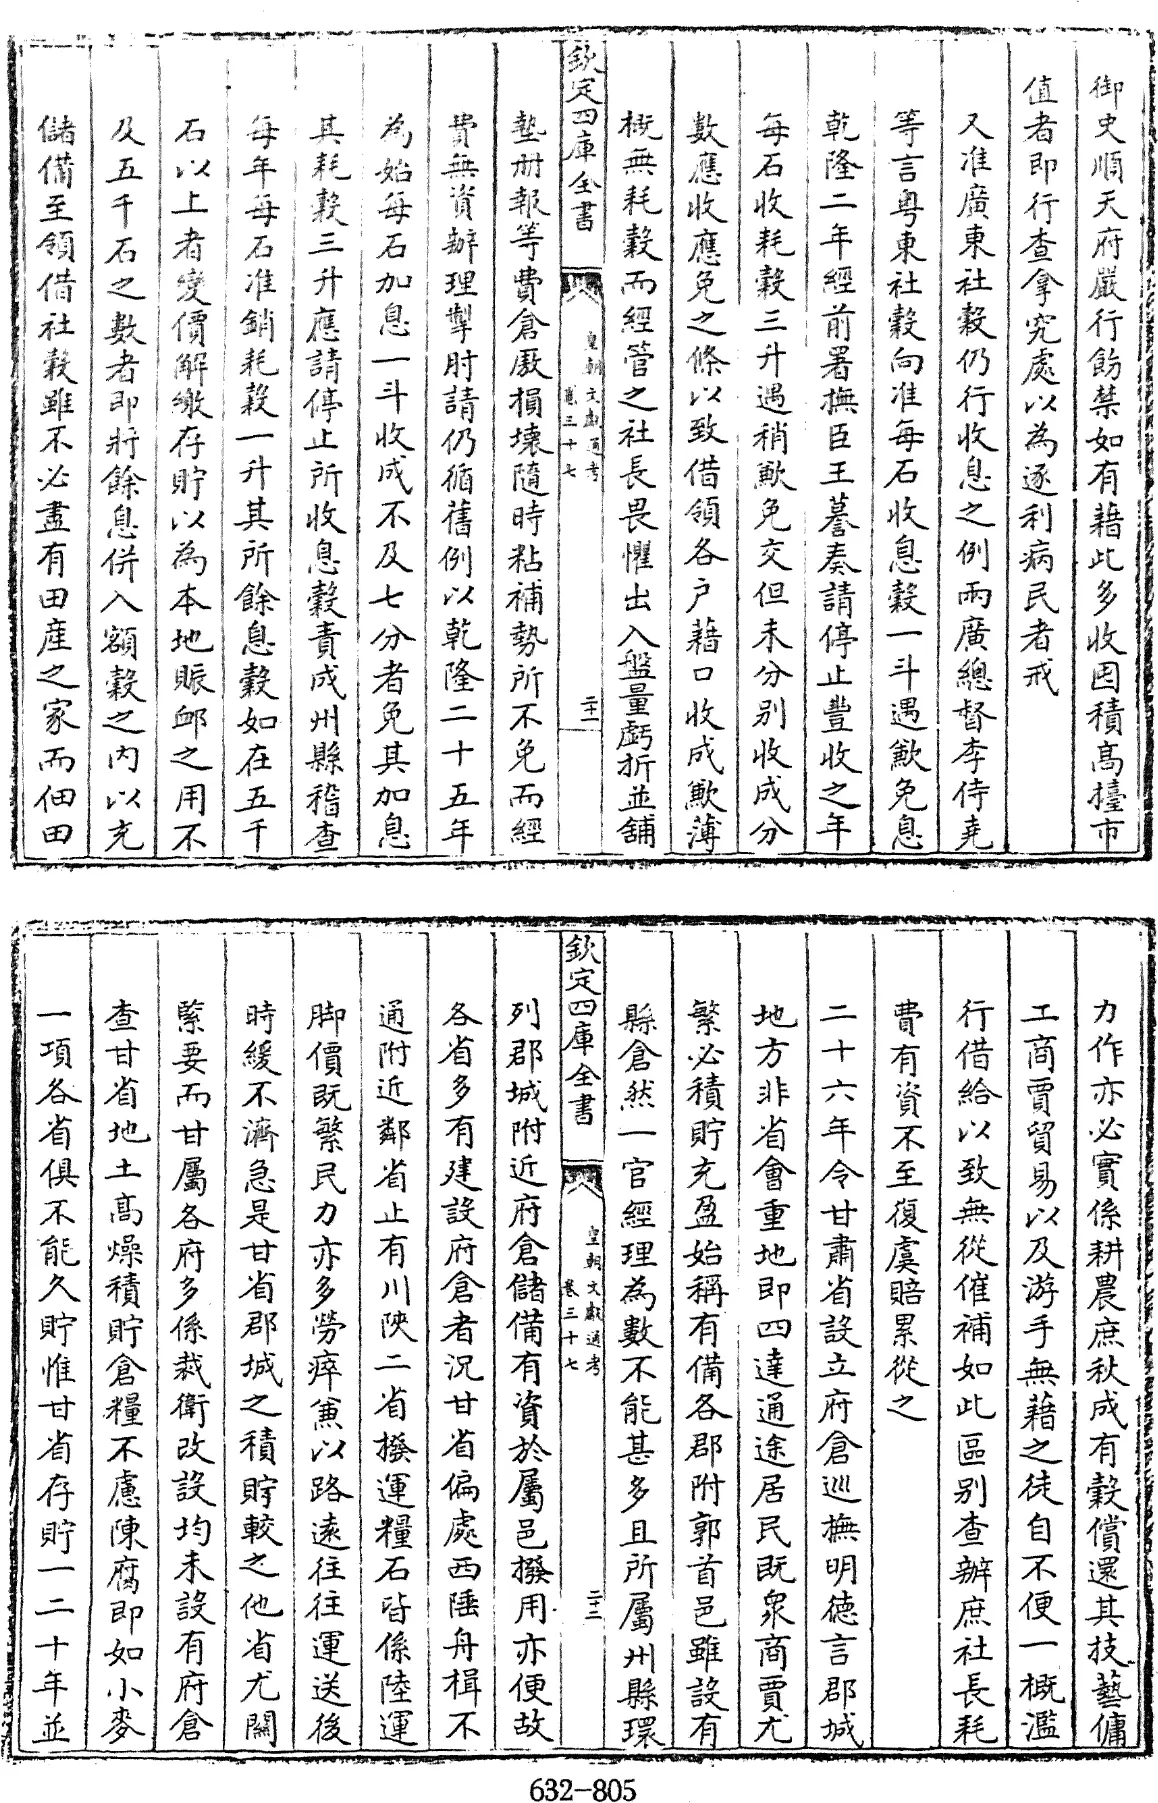 御史順天府嚴行飭禁如有藉此多收囤積高擡市
值者即行查拿究處以為逐利病民者戒
又准廣東社穀仍行收息之例兩廣總督李侍堯
等言粵東社穀向准每石收息穀一斗遇歉免息
乾隆二年經前署撫臣王謩奏請停止豐收之年
每石收耗穀三升遇稍歉免交但未分別收成分
數應收應免之條以致借領各户藉口收成歉薄
概無耗穀而經管之社長畏懼出入盤量虧折並舖
欽定四庫全書
皇朝文獻通考
卷三十七
二十一
墊册報等費倉厫損壞隨時粘補勢所不免而經
費無資辦理掣肘請仍循舊例以乾隆二十五年
為始每石加息一斗收成不及七分者免其加息
其耗穀三升應請停止所收息穀責成州縣稽查
每年每石准銷耗穀一升其所餘息穀如在五千
石以上者變價解繳存貯以為本地賑卹之用不
及五千石之數者即將餘息併入額穀之内以充
儲備至領借社穀雖不必盡有田産之家而佃田
力作亦必實係耕農庶秋成有穀償還其技藝傭
工商賈貿易以及游手無藉之徒自不便一概濫
行借給以致無從催補如此區别查辦庶社長耗
費有資不至復虞賠累從之
二十六年令甘肅省設立府倉巡撫明徳言郡城
地方非省會重地即四達通途居民既衆商賈尤
繁必積貯充盈始稱有備各郡附郭首邑雖設有
縣倉然一官經理為數不能甚多且所屬州縣環
欽定四庫全書
皇朝文獻通考
卷三十七
二十二
列郡城附近府倉儲備有資於屬邑撥用亦便故
各省多有建設府倉者況甘省偏處西陲舟楫不
通附近鄰省止有川陜二省撥運糧石皆係陸運
脚價既繁民力亦多勞瘁兼以路遠往往運送後
時緩不濟急是甘省郡城之積貯較之他省尤關
緊要而甘屬各府多係裁衛改設均未設有府倉
查甘省地土高燥積貯倉糧不慮陳腐即如小麥
一項各省俱不能久貯惟甘省存貯一二十年並
632-805